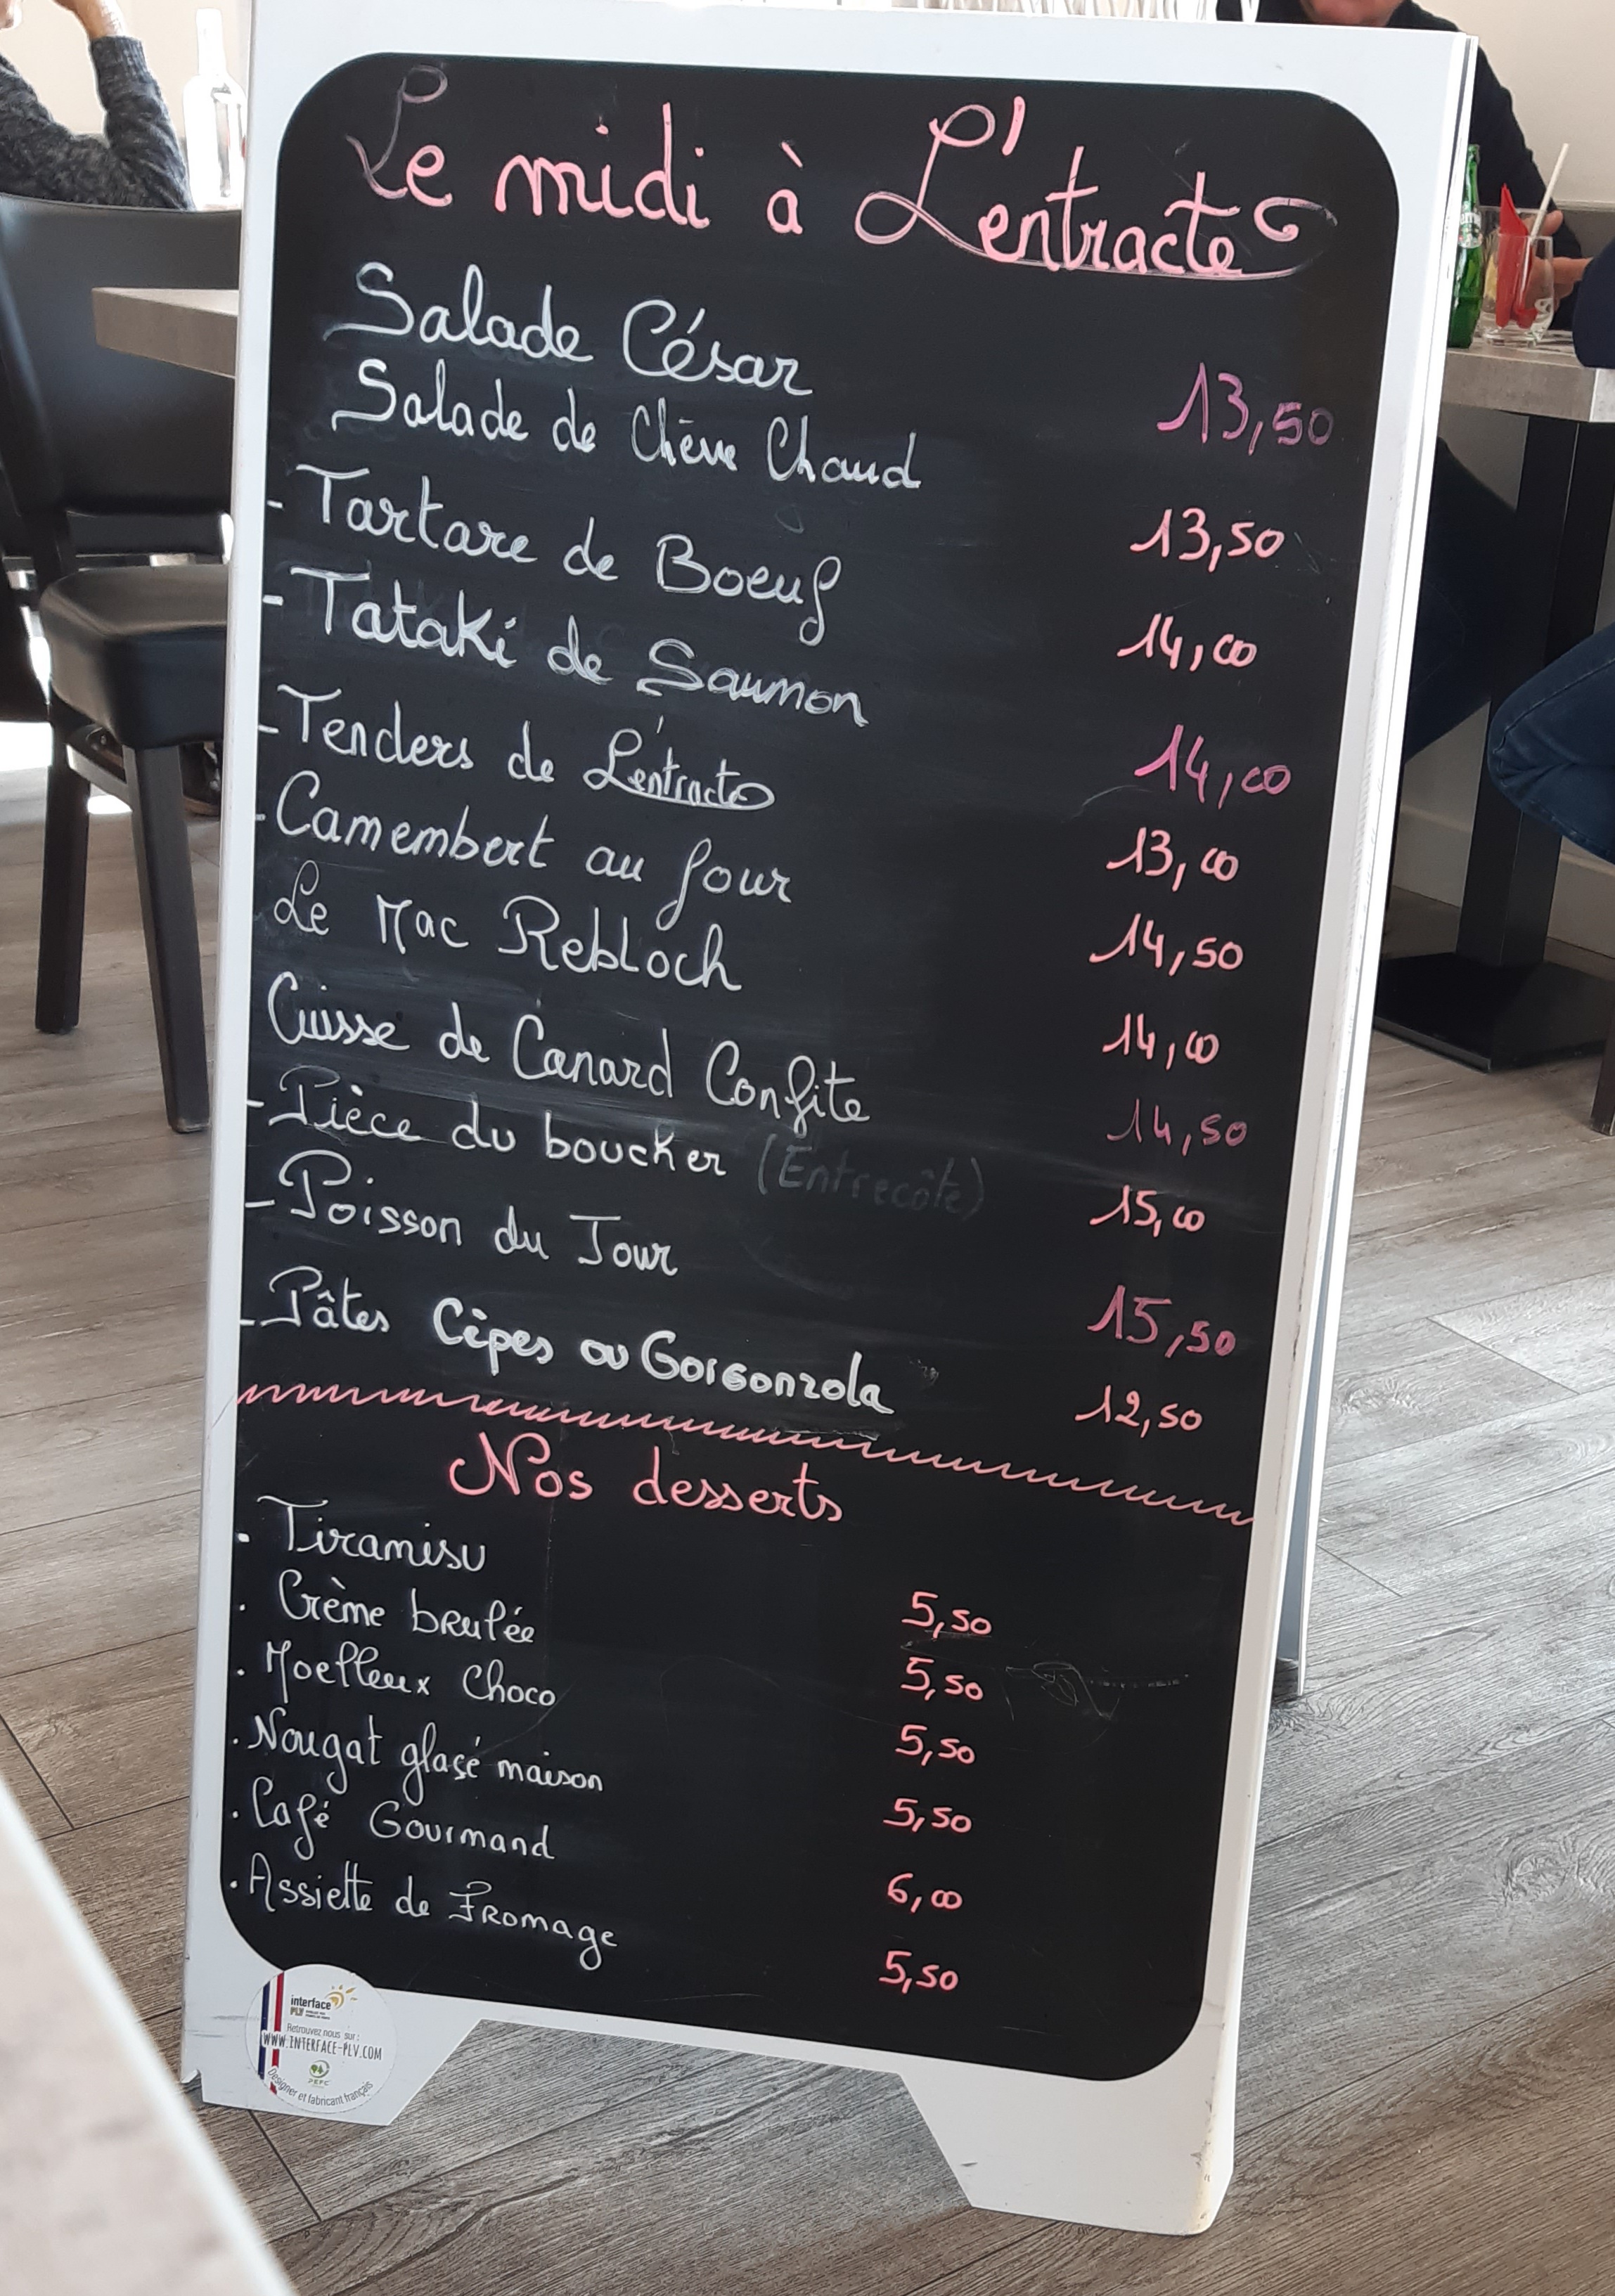 Le midi à L'entracte
Salade César 13,50
Salade de Chèvre Chaud 13,50
- Tartare de Boeuf 14,00
- Tataki de Saumon 14,00
- Tenders de L'entracte 13,00
- Camembert au four 14,50
Le Mac Rebloch 14,00
Cuisse de Canard Confite 14,50
- Pièce du boucher (Entrecôte) 15,00
- Poisson du Jour 15,50
- Pâtes Cèpes ou Gorgonzola 12,50
Nos desserts
. Tiramisu 5,50
. Crème brulée 5,50
. Moelleux Choco 5,50
. Nougat glacé maison 5,50
. Café Gourmand 6,00
. Assiette de Fromage 5,50
interface
PLV
Retrouvez nous sur :
WWW.INTERFACE-PLV.COM
PEFC
Designer et fabricant français